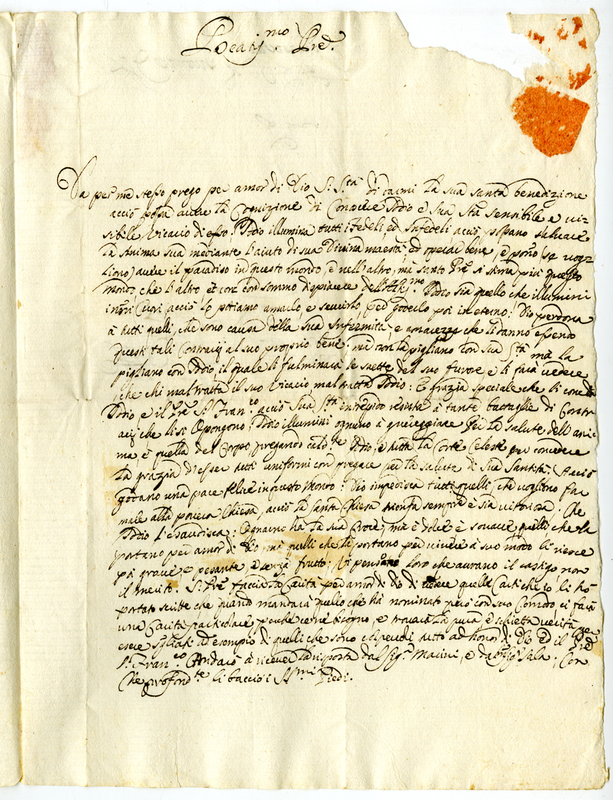 Beatis.mo Pre.
Da per me stesso prego per amor di Dio S. S.tà di darmi la sua santa benedizione
acciò possa avere la Cognizione di Conoscere Iddio e Sua S.tà sensibile e vi-
sibile Vicario di esso: Iddio illumina tutti i Fedeli ed Infedeli acciò possano salvare
la Anima sua mediante l'aiuto di sua Divina maestà ed operar bene, e pono (se vog-
liono) avere il paradiso in questo mondo, e nell'altro, ma santo Pre si stima più questo
mondo, che l'altro et ciò con sommo dispiacere dell' Iddio sia quello che illumini
i nostri Cuori acciò lo potiamo amarlo e servirlo, per goderlo poi in eterno: Dio perdona
à tutti quelli, che sono causa della Sua Infermità e che li danno essendo
questi tali Contrarij al suo proprio bene: ma non la pigliano con Sua S.tà mà la
pigliano con Iddio il quale li fulminarà le saette del suo furore e li farà vedere
che chi maltratta il suo Vicario maltratta Iddio: è grazia speciale che li concede
Iddio e il Pre S. Fran.co acciò Sua S.tà intrepido resista à tante battaglie di Contr
arij che li si Oppongono: Iddio illumini ognuno à per la salute dell'ani-
ma e quella del Corpo pregando Iddio, e tutta la Corte Celeste per concedere
la grazia di essere tutti uniformi con pregare per la salute di Sua Santità: acciò
godano una pace felice in questo Mondo: Dio impedisca tutti quelli, che vogliono far
male alla povera Chiesa, acciò la Santa Chiesa trionfa sempre e sia vitoriosa: Che
Iddio l'esaurisca: Ognuno hà la sua Croce, mà è dolce e soave à quelli che la
portano per amor di Dio mà quelli che la portano per vivere à suo modo li riesce
più grave, e pesante, e senza frutto: Vi pensano loro che avrano il castigo non
il merito. S. Pre faccia la Carità per amor di Dio di vedere quelle Cartiche io li hò
portato scritte che quando mantarà quello che hà nominato persi con suo Comodo ci farà
una Carità particolare perche ne hò bisogno, e trovarà la pura e schietta verità
come ad esempio di quelli che sono tutto ad honor di Dio ed il Pre
S. Fran.co Andarò à ricevere la risposta dal Sig.r Marini, e dal Sig.r Sala; Con
che profond.te li baccio i S.mi Piedi.